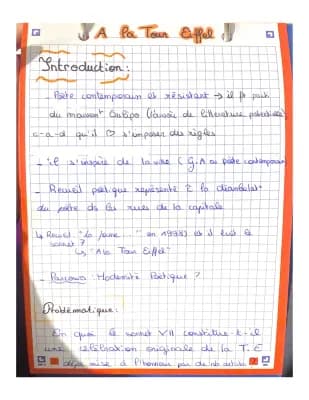 A la Tour Eiffel
Introduction :
- Poète contemporain et résistant → il ft parti
du mouvemt Oulipo (l'ouvoir de littérature potentielle)
c-a-d qu'il ♡ s'imposer des règles
- il s'inspire de la vie (G.A ou poète contemporain)
- Recueil poétique représente la
du poète ds les rues de la capitale
↳ Recueil "la forme ..." en 1999) où il écrit le
sonnet ?
↳ "A la Tour Eiffel"
- Parcours : Modernité Poétique ?
Problématique :
En quoi le sonnet VII constitue-t-il
une célébration originale de la T.E
déjà mise à l'honneur par de nb artistes ?